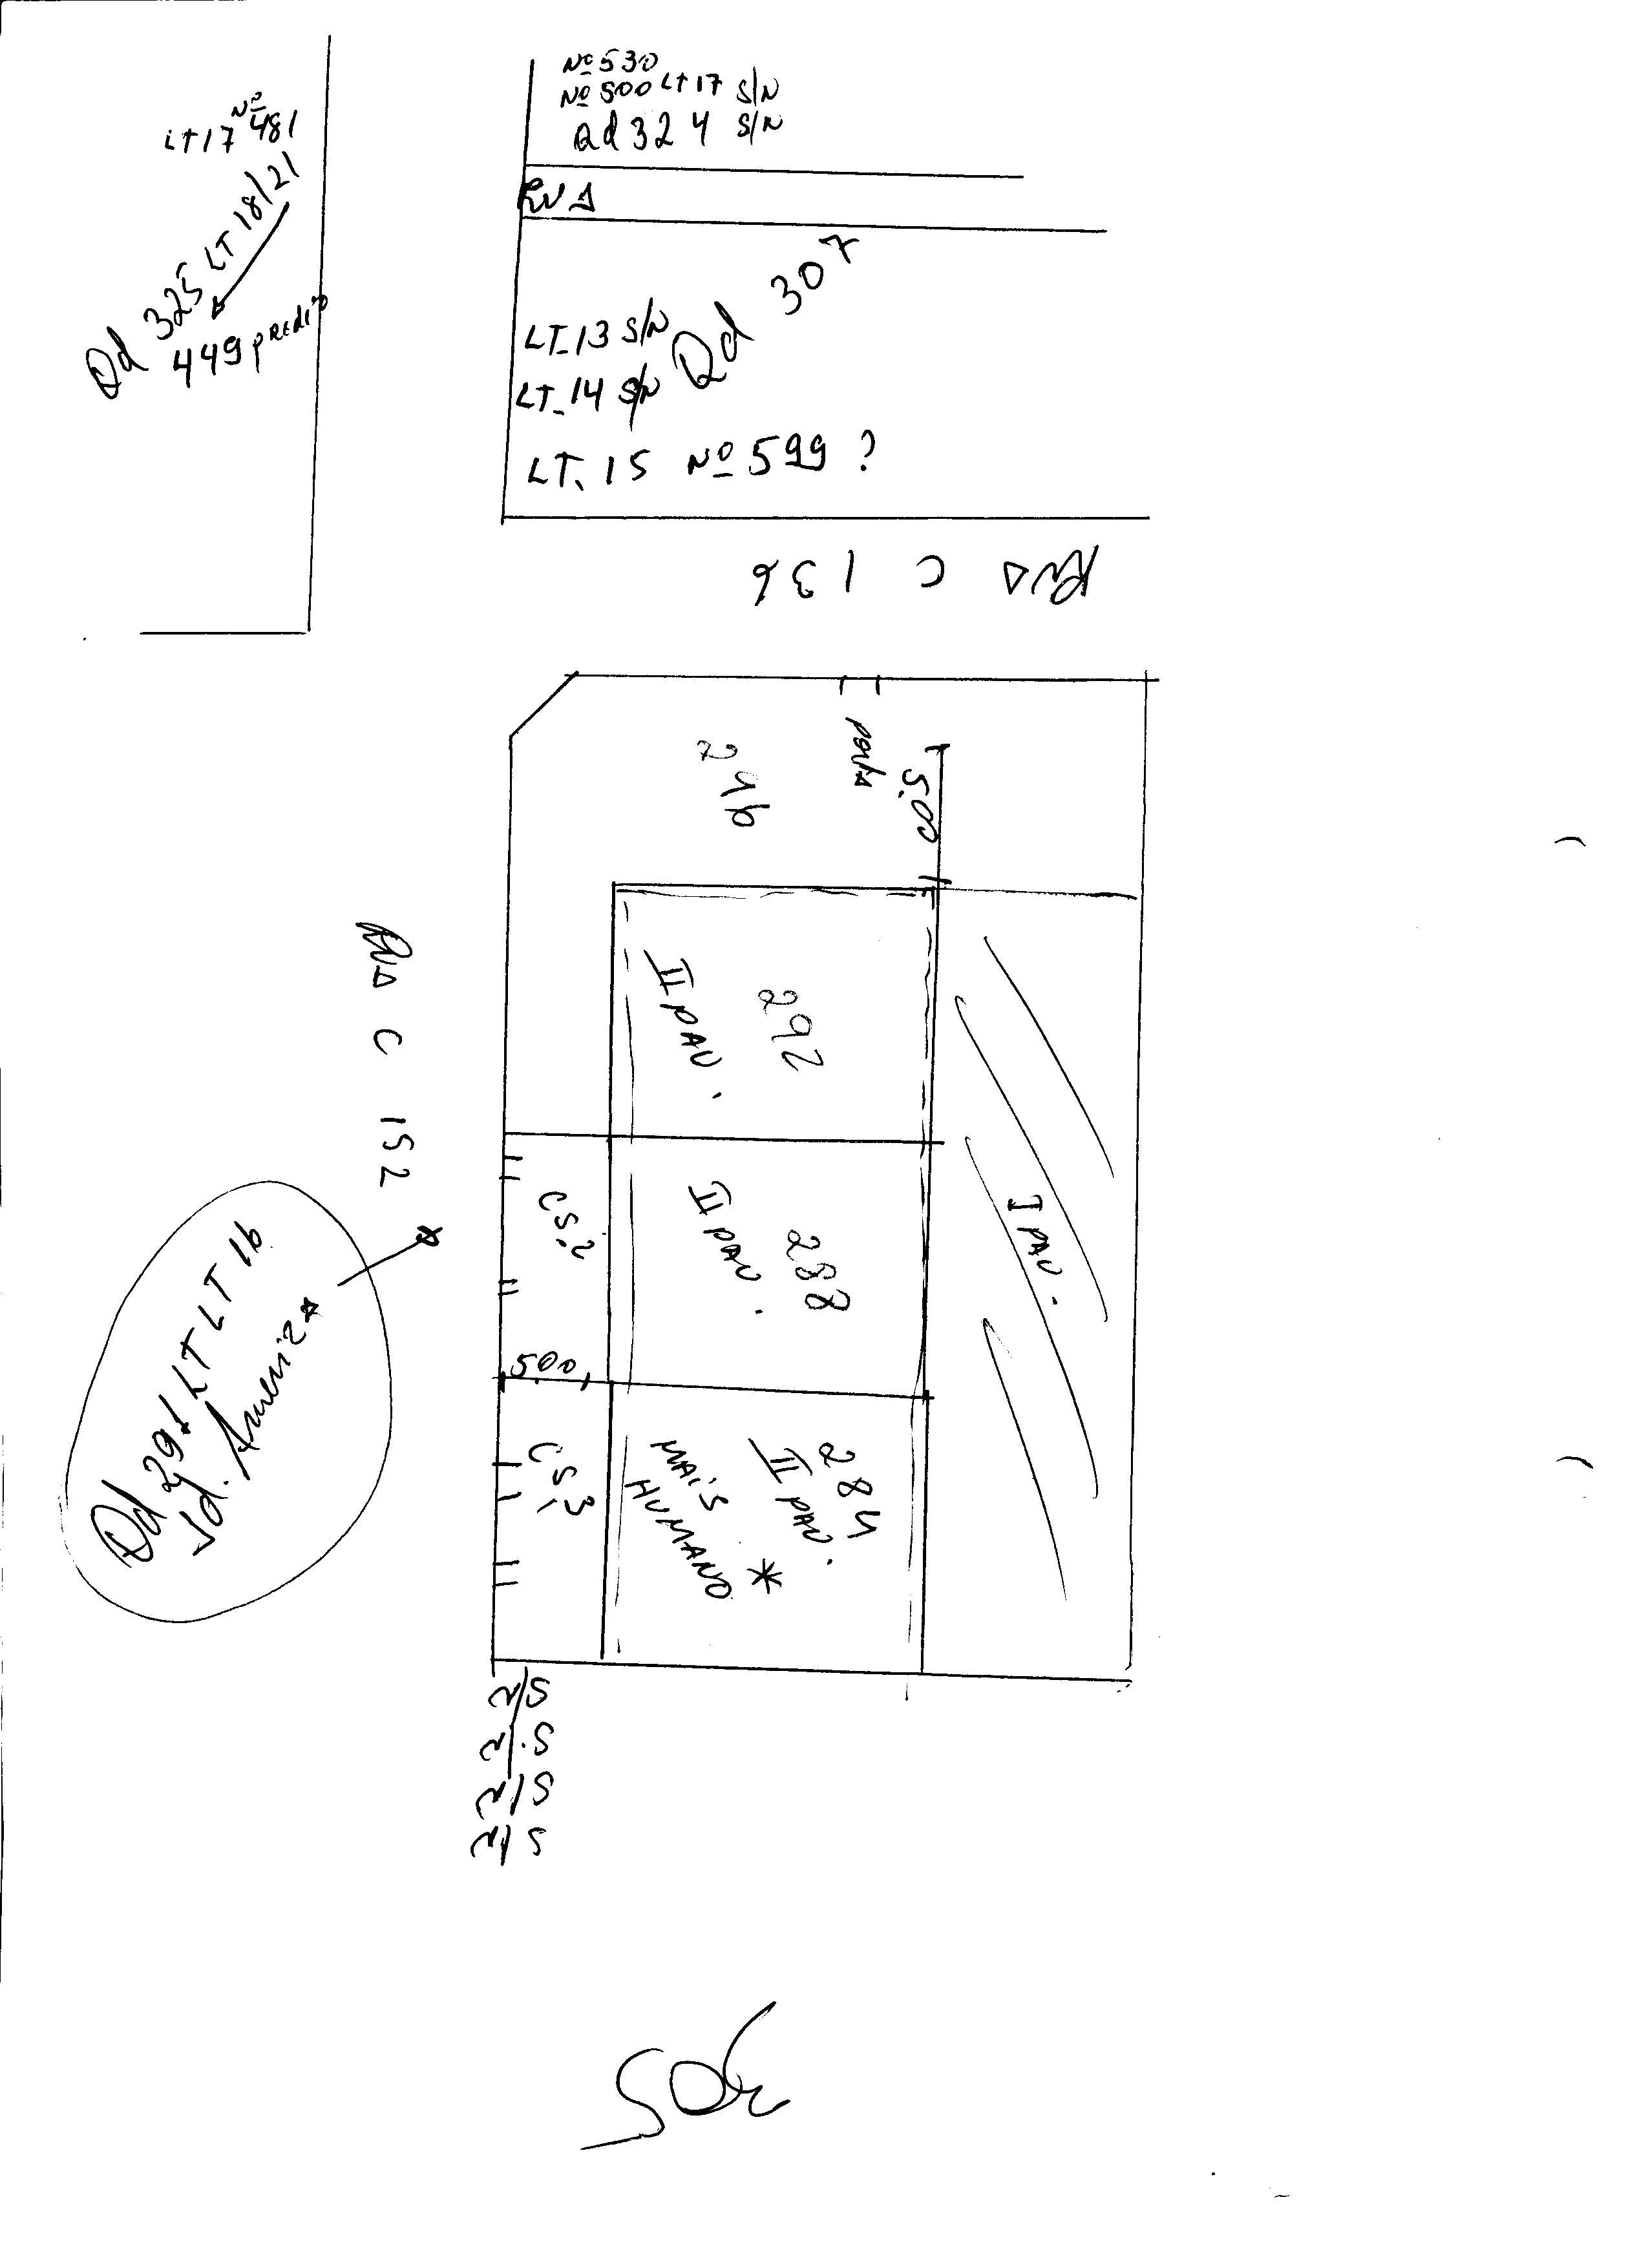 Nº 530
Nº 500 LT 17 S/N
Qd 324 S/N
RUA
Nº 481
LT 17
Qd 325 LT 18/21
449 PREDIO
Qd 307
LT-13 S/N
LT-14 S/N
LT. 15 Nº 599 ?
RUA C 136
porta
5.00
292
II PAV.
RUA C 152
CS.2
288
II PAV.
I PAV.
5.00
CS 3
284
II PAV.
MAIS
HUMANO *
LT 16
Jd. America
S/N
S/N
S/N
S/N